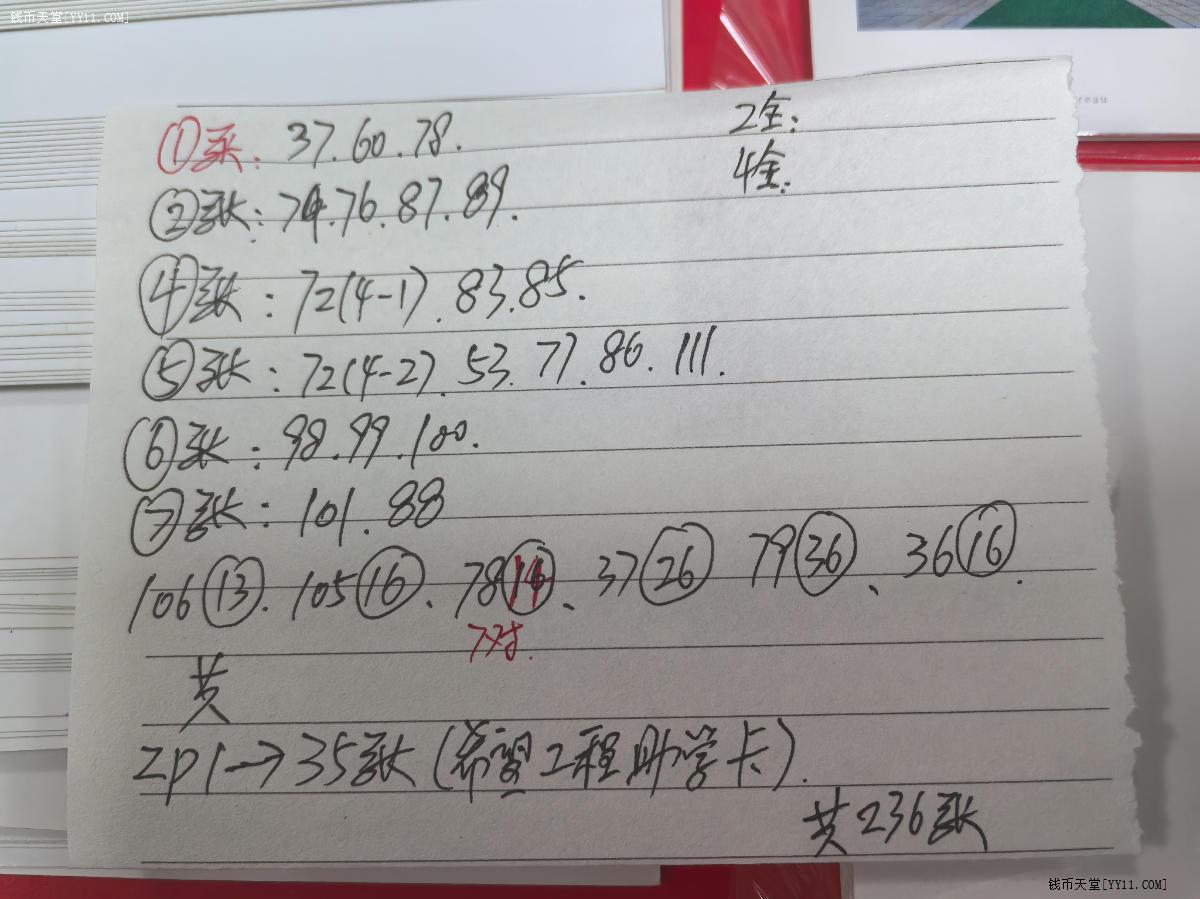 钱币天堂[YY11.COM]
reau
①张: 37.60.78. 2全:
②张: 74.76.87.89. 4全:
④张: 72(4-1).83.85.
⑤张: 72(4-2).53.77.86.111.
⑥张: 98.99.100.
⑦张: 101.88
106⑬.105⑯、78⑭、37㉖ 79㊱、36⑯.
7对.
共
ZP1→35张(希望工程助学卡).
共236张
钱币天堂[YY11.COM]